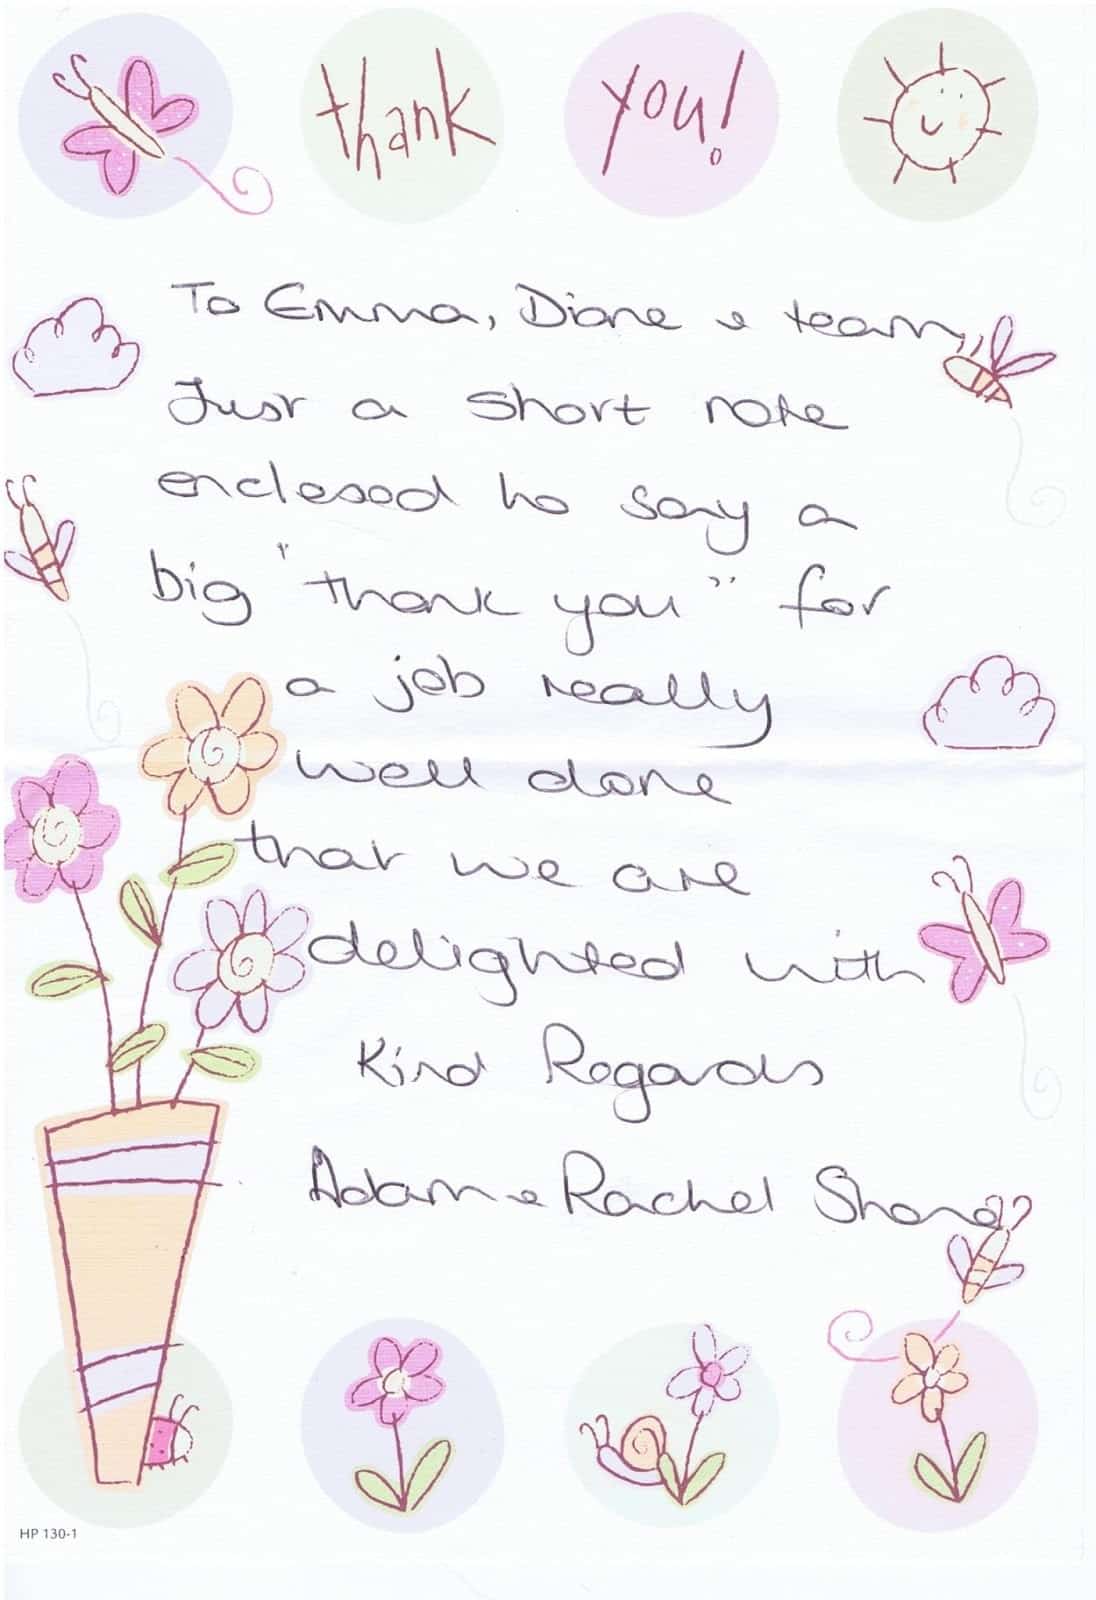 thank you!
To Emma, Diane & team,
Just a short note
enclosed to say a
big "thank you" for
a job really
well done
that we are
delighted with
Kind Regards
Adam & Rachel
HP 130-1